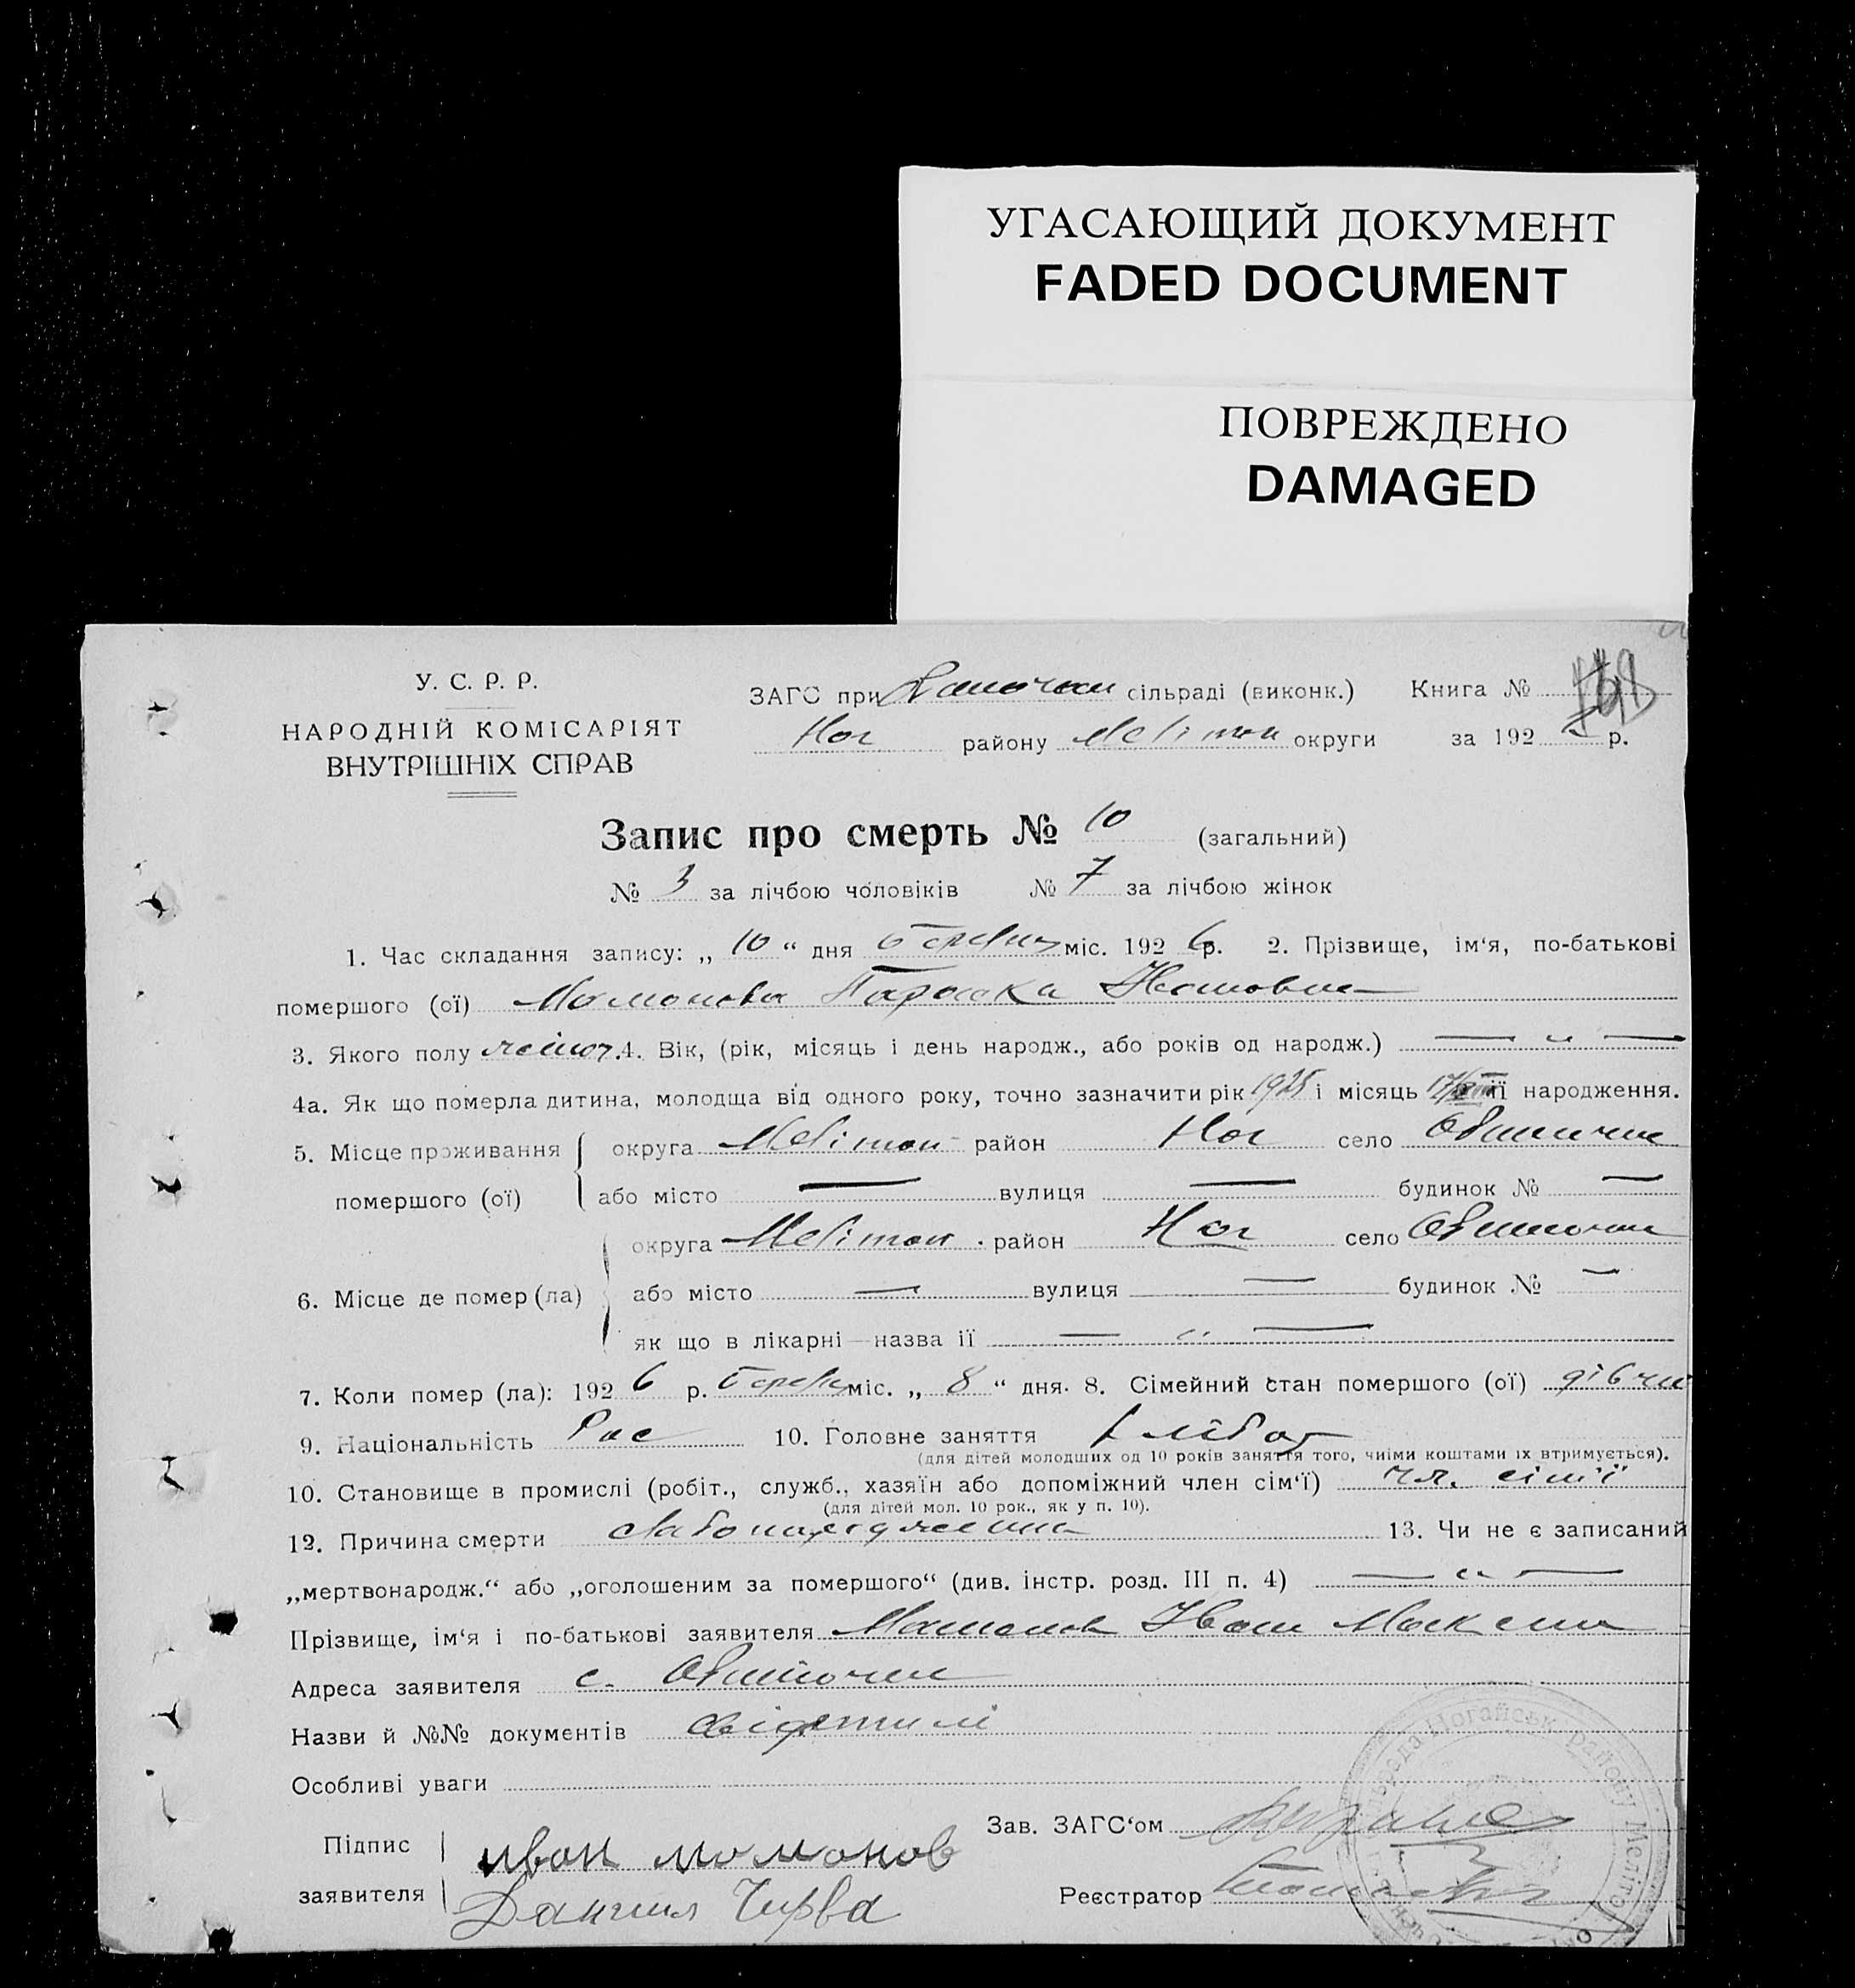 УГАСАЮЩИЙ ДОКУМЕНТ
FADED DOCUMENT
ПОВРЕЖДЕНО
DAMAGED
У. С. Р. Р.
НАРОДНІЙ КОМІСАРІЯТ
ВНУТРІШНІХ СПРАВ
ЗАГС при сільраді (виконк.) Книга №
Ног району Мелітоп округи за 192 р.
Запис про смерть № 10 (загальний)
№ 3 за лічбою чоловіків № 7 за лічбою жінок
1. Час складання запису: „ 10 “ дня березня міс. 192 6 р. 2. Прізвище, ім‘я, по-батькові
помершого (ої) Момонова Параска Ивановна
3. Якого полу жіноч. 4. Вік, (рік, місяць і день народж., або років од народж.) — „ —
4а. Як що померла дитина, молодща від одного року, точно зазначити рік 1925 і місяць її народження.
5. Місце проживання округа Мелітоп район Ног село Обіточне
помершого (ої) або місто — вулиця — будинок № —
округа Мелітоп. район Ног село Обіточне
6. Місце де помер (ла) або місто — вулиця — будинок № —
як що в лікарні — назва її — „ —
7. Коли помер (ла): 192 6 р. березня міс. „ 8 “ дня. 8. Сімейний стан помершого (ої)
9. Національність Рос 10. Головне заняття хлібор
(для дітей молодших од 10 років заняття того, чиїми коштами їх втримується).
10. Становище в промислі (робіт., служб., хазяїн або допоміжний член сім‘ї) чл. сім'ї
(для дітей мол. 10 рок., як у п. 10).
12. Причина смерти 13. Чи не є записаний
„мертвонародж.“ або „оголошеним за помершого“ (див. інстр. розд. III п. 4) — „ —
Прізвище, ім‘я і по-батькові заявителя Момонов Иван Максим
Адреса заявителя с. Обіточне
Назви й №№ документів
Особливі уваги
Зав. ЗАГС‘ом
Підпис иван момонов
заявителя Даниил Чирва
Реєстратор
Ногайськ району Мелітоп